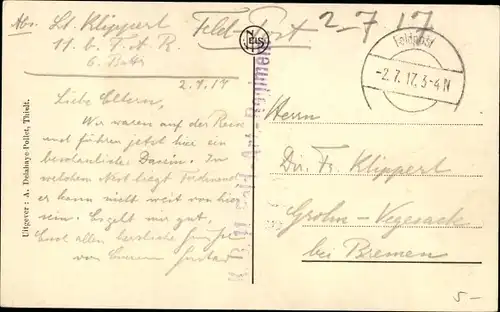 Abs. Lt. Klippert
11. b. F. A. R.
6. Battr.
Feldpost
2-7 17
NELS
Feldpost
-2.7.17.3-4N
2.7.17
Liebe Eltern,
Wir waren auf der Reise
und führen jetzt hier ein
beschauliches Dasein. In
welchem Nest liegt Ferdinand
er kann nicht weit von hier
sein. Es geht mir gut,
Euch allen herzliche Grüsse
von Eurem Gustav
Herrn
Dir. Fr. Klippert
Grohn-Vegesack
bei Bremen
Uitgever: A. Delahaye-Pollet, Thielt.
5-